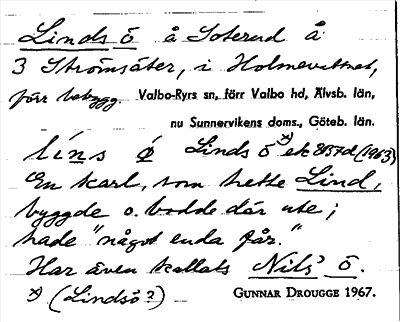 Linds ö å Soterud å
3 Strömsäter, i Holmevattnet,
förr bebygg. Valbo-Ryrs sn, förr Valbo hd, Älvsb. län,
nu Sunnervikens doms., Göteb. län.
líns ø Linds ö x) ek 8B7d (1963)
En karl, som hette Lind,
byggde o. bodde där ute;
hade "något enda får."
Har även kallats Nils' ö.
x) (Lindsö?) GUNNAR DROUGGE 1967.